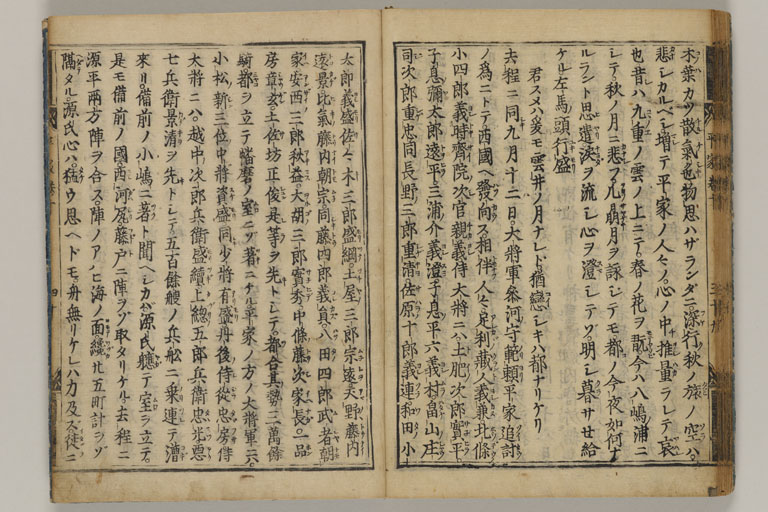 木葉カツ散氣色物思ハザランダニ深行秋ノ旅ノ空ハ。
悲シカルベシ増テ平家ノ人々ノ心ノ中推量ラレテ哀
也昔ハ九重ノ雲ノ上ニテ。春ノ花ヲ翫今ハ八嶋浦ニ
シテ。秋ノ月ニ悲フ凡朗月ヲ詠シテモ都ノ今夜如何ナ
ルラント思遣涙ヲ流シ心ヲ澄シテソ明シ暮サセ給
ケル左馬頭行盛
君スメハ爰モ雲井ノ月ナレド猶戀シキハ都ナリケリ
去程ニ同九月十二日大將軍參河守範頼平家追討
ノ爲ニトテ西國ヘ發向ス相伴人々足利藏人義兼北條
小四郎義時齊院次官親義侍大將ニハ土肥次郎實平。
子息彌太郎遠平三浦介義澄子息平六義村畠山庄
司次郎重忠同長野三郎重清佐原十郎義連和田小
太郎義盛佐々木三郎盛綱土屋三郎宗遠天野藤内
遠景比氣藤内朝宗同藤四郎義員八田四郎武者朝
家安西三郎秋益。大胡三郎實秀中條藤次家長。一品
房章玄土佐坊正俊是等ヲ先トシテ。都合其勢三萬餘
騎都ヲ立テ播磨ノ室ニゾ著ニケル平家ノ方ノ大將軍ニハ。
小松新三位中將資盛同少將有盛丹後侍從忠房侍
大將ニハ越中次郎兵衛盛續上總五郎兵衛忠光惡
七兵衛景清ヲ先トシテ五百餘艘ノ兵舩ニ乗連テ漕
來リ。備前ノ小嶋ニ著ト聞ヘシカハ源氏軈テ室ヲ立テ。
是モ備前ノ國西河尻藤戸ニ陣ヲゾ取タリケル去程ニ
源平兩方陣ヲ合ス陣ノアハヒ海ノ面纔廿五町計ヲゾ
隔タル源氏心ハ猛ウ思ヘドモ。舟無リケレハ力及ズ徒ニ